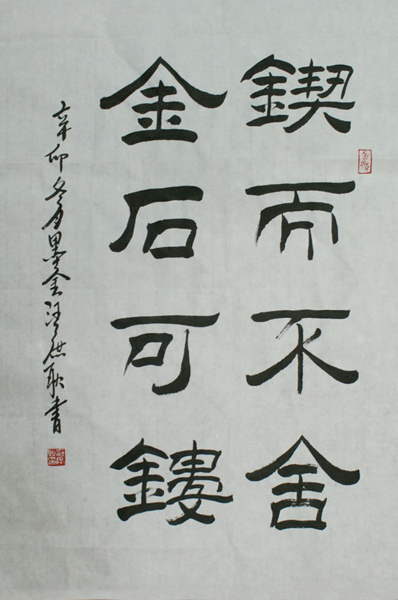 鍥而不舍
金石可鏤
辛卯冬月墨金汪庶耿書